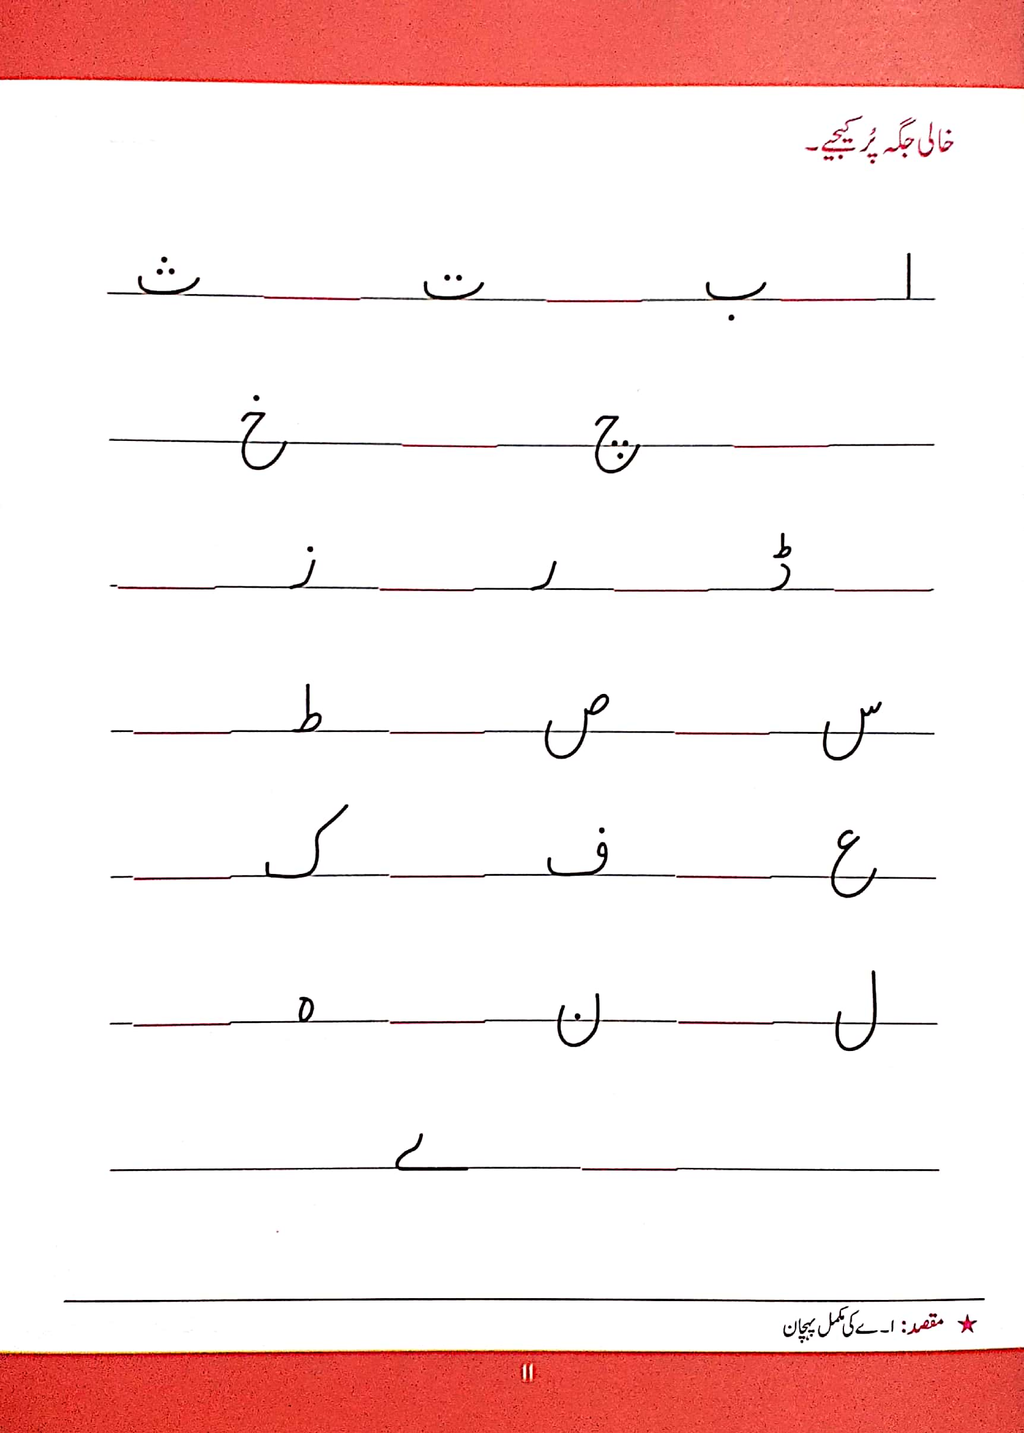 خالی جگہ پُر کیجیے۔
ا ب ت ث
چ خ
ڈ ر ز
س ص ط
ع ف ک
ل ن ہ
ے
★ مقصد: ا۔ے کی مکمل پہچان
11